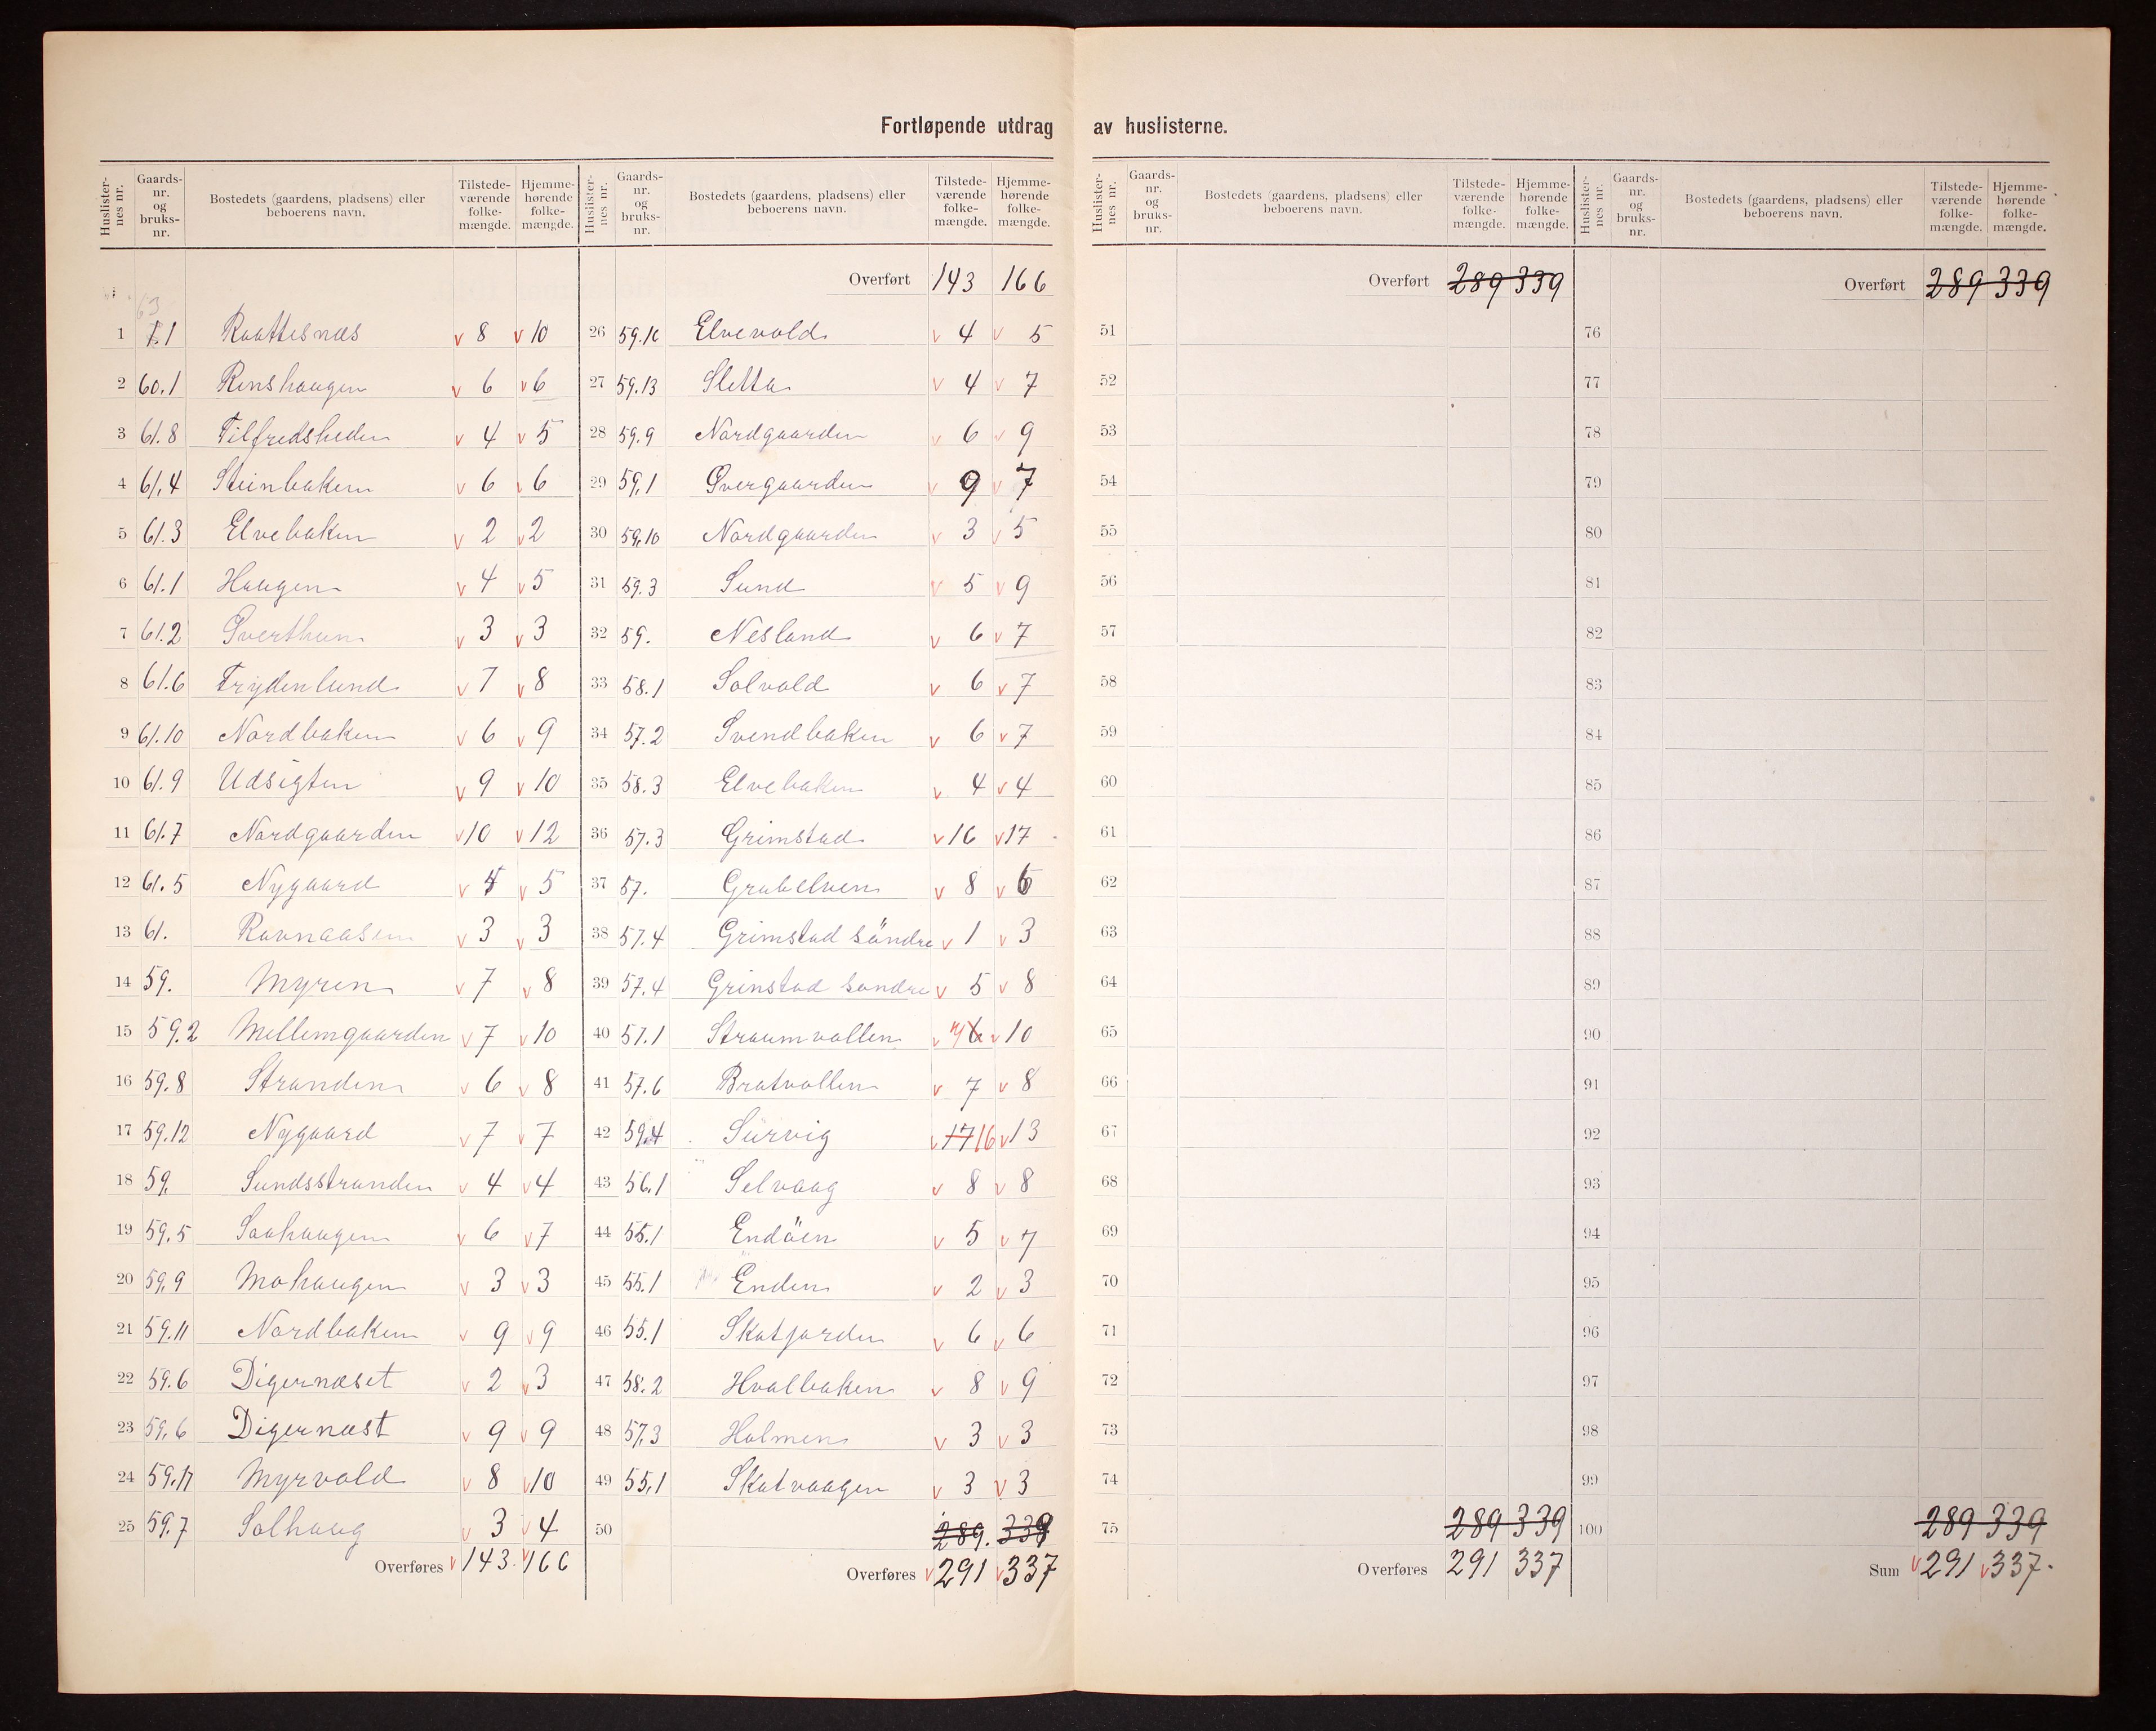 Fortløpende utdrag av huslisterne.
Huslisternes nr. Gaards-nr. og bruks-nr. Bostedets (gaardens, pladsens) eller beboerens navn. Tilstedeværende folkemængde. Hjemmehørende folkemængde.
63
1 7.1 Raattesnæs v 8 v 10
2 60.1 Renshaugen v 6 v 6
3 61.8 Tilfredsheden v 4 v 5
4 61.4 Steinbaken v 6 v 6
5 61.3 Elvebaken v 2 v 2
6 61.1 Haugen v 4 v 5
7 61.2 v 3 v 3
8 61.6 Frydenlund v 7 v 8
9 61.10 Nordbaken v 6 v 9
10 61.9 Udsigten v 9 v 10
11 61.7 Nordgaarden v 10 v 12
12 61.5 Nygaard v v 5
13 61. Ravnaasen v 3 v 3
14 59. Myren v 7 v 8
15 59.2 Mellemgaarden v 7 v 10
16 59.8 Stranden v 6 v 8
17 59.12 Nygaard v 7 v 7
18 59. Sundsstranden v 4 v 4
19 59.5 v 6 v 7
20 59.9 Mohaugen v 3 v 3
21 59.11 Nordbaken v 9 v 9
22 59.6 Digernæset v 2 v 3
23 59.6 Digernæst v 9 v 9
24 Myrvold v 8 v 10
25 59.7 Solhaug v 3 v 4
Overføres v 143. v 166
Huslisternes nr. Gaards-nr. og bruks-nr. Bostedets (gaardens, pladsens) eller beboerens navn. Tilstedeværende folkemængde. Hjemmehørende folkemængde.
Overført 143 166
26 Elvevold v 4 v 5
27 59.13 Sletta v 4 v 7
28 59.9 Nordgaarden v 6 v 9
29 59.1 Øvergaarden v 9 v 7
30 59.10 Nordgaarden v 3 v 5
31 59.3 Sund v 5 v 9
32 59. Nesland v 6 v 7
33 58.1 Solvold v 6 v 7
34 57.2 Svendbaken v 6 v 7
35 58.3 Elvebaken v 4 v 4
36 57.3 Grimstad v 16 v 17
37 57. Grubelven v 8 v 6
38 57.4 Grimstad söndre v 1 v 3
39 57.4 Grinstad söndre v 5 v 8
40 57.1 Straumvollen v v 10
41 57.6 Bratvollen v 7 v 8
42 59.4 Sürvig v 17 16 v 13
43 56.1 Selvaag v 8 v 8
44 55.1 Endöen v 5 v 7
45 55.1 Enden v 2 v 3
46 55.1 Skatjorden v 6 v 6
47 58.2 Hvalbaken v 8 v 9
48 57.3 Holmen v 3 v 3
49 55.1 Skatvaagen v 3 v 3
50 289. 339
Overføres v 291 v 337
Huslisternes nr. Gaards-nr. og bruks-nr. Bostedets (gaardens, pladsens) eller beboerens navn. Tilstedeværende folkemængde. Hjemmehørende folkemængde.
Overført 289 339
51
52
53
54
55
56
57
58
59
60
61
62
63
64
65
66
67
68
69
70
71
72
73
74
75 289 339
Overføres 291 337
Huslisternes nr. Gaards-nr. og bruks-nr. Bostedets (gaardens, pladsens) eller beboerens navn. Tilstedeværende folkemængde. Hjemmehørende folkemængde.
Overført 289 339
76
77
78
79
80
81
82
83
84
85
86
87
88
89
90
91
92
93
94
95
96
97
98
99
100 289 339
Sum v 291 v 337.